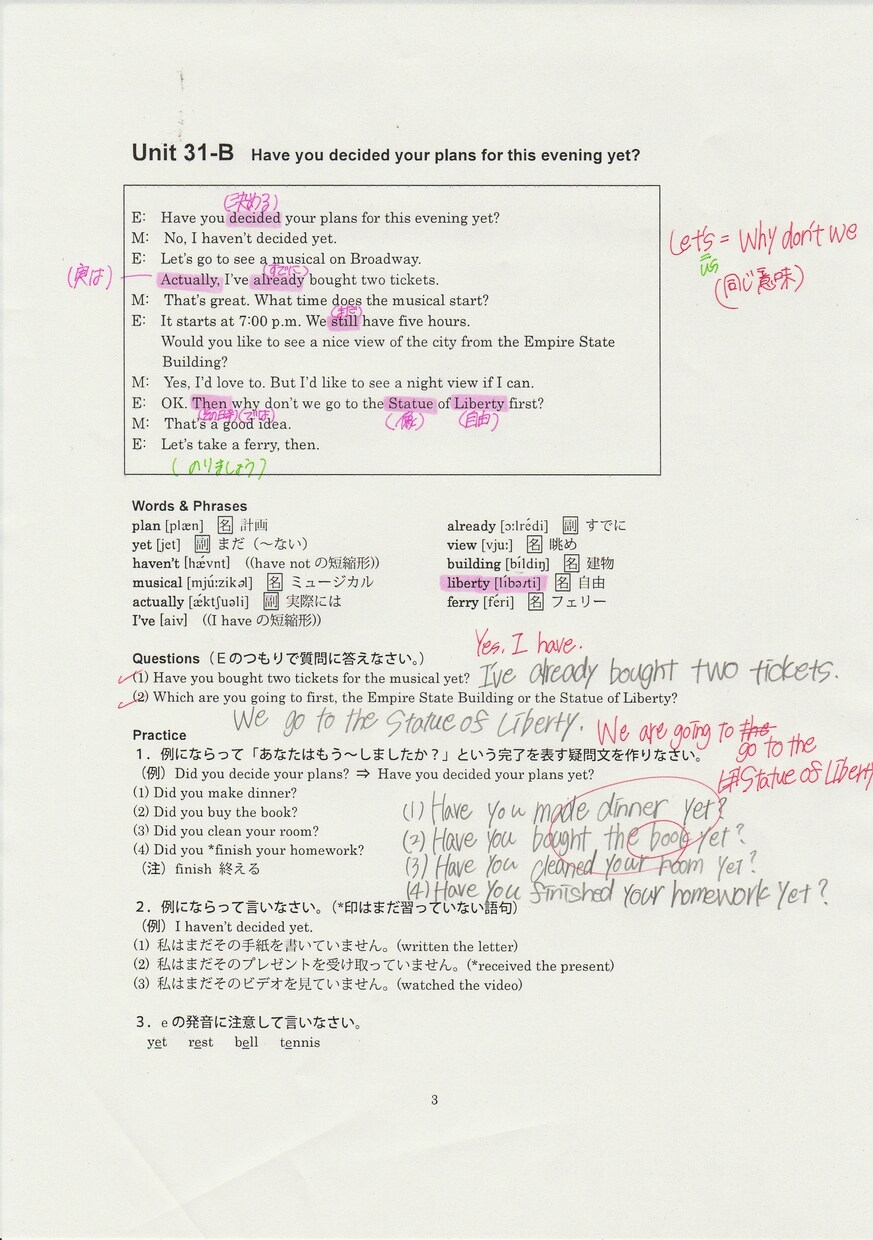 Unit 31-B Have you decided your plans for this evening yet?
(決める)
E: Have you decided your plans for this evening yet?
M: No, I haven't decided yet.
E: Let's go to see a musical on Broadway.
(すでに)
(実は) Actually, I've already bought two tickets.
M: That's great. What time does the musical start?
(まだ)
E: It starts at 7:00 p.m. We still have five hours.
Would you like to see a nice view of the city from the Empire State
Building?
M: Yes, I'd love to. But I'd like to see a night view if I can.
E: OK. Then why don't we go to the Statue of Liberty first?
(その時) (では) (像) (自由)
M: That's a good idea.
E: Let's take a ferry, then.
(のりましょう)
Let's = Why don't we
us
(同じ意味)
Words & Phrases
plan [plæn] 名 計画
yet [jet] 副 まだ（～ない）
haven't [hǽvnt] ((have not の短縮形))
musical [mjúːzikəl] 名 ミュージカル
actually [ǽktʃuəli] 副 実際には
I've [aiv] ((I have の短縮形))
already [ɔːlrédi] 副 すでに
view [vjuː] 名 眺め
building [bíldiŋ] 名 建物
liberty [líbərti] 名 自由
ferry [féri] 名 フェリー
Yes, I have.
Questions（Eのつもりで質問に答えなさい。）
(1) Have you bought two tickets for the musical yet? I've already bought two tickets.
(2) Which are you going to first, the Empire State Building or the Statue of Liberty?
We go to the Statue of Liberty. We are going to the
go to the
Statue of Liberty
Practice
１．例にならって「あなたはもう～しましたか？」という完了を表す疑問文を作りなさい。
（例）Did you decide your plans? ⇒ Have you decided your plans yet?
(1) Did you make dinner?
(2) Did you buy the book?
(3) Did you clean your room?
(4) Did you *finish your homework?
（注）finish 終える
(1) Have you made dinner yet?
(2) Have you bought the book yet?
(3) Have you cleaned your room yet?
(4) Have you finished your homework yet?
２．例にならって言いなさい。（*印はまだ習っていない語句）
（例）I haven't decided yet.
(1) 私はまだその手紙を書いていません。(written the letter)
(2) 私はまだそのプレゼントを受け取っていません。(*received the present)
(3) 私はまだそのビデオを見ていません。(watched the video)
３．e の発音に注意して言いなさい。
yet rest bell tennis
3